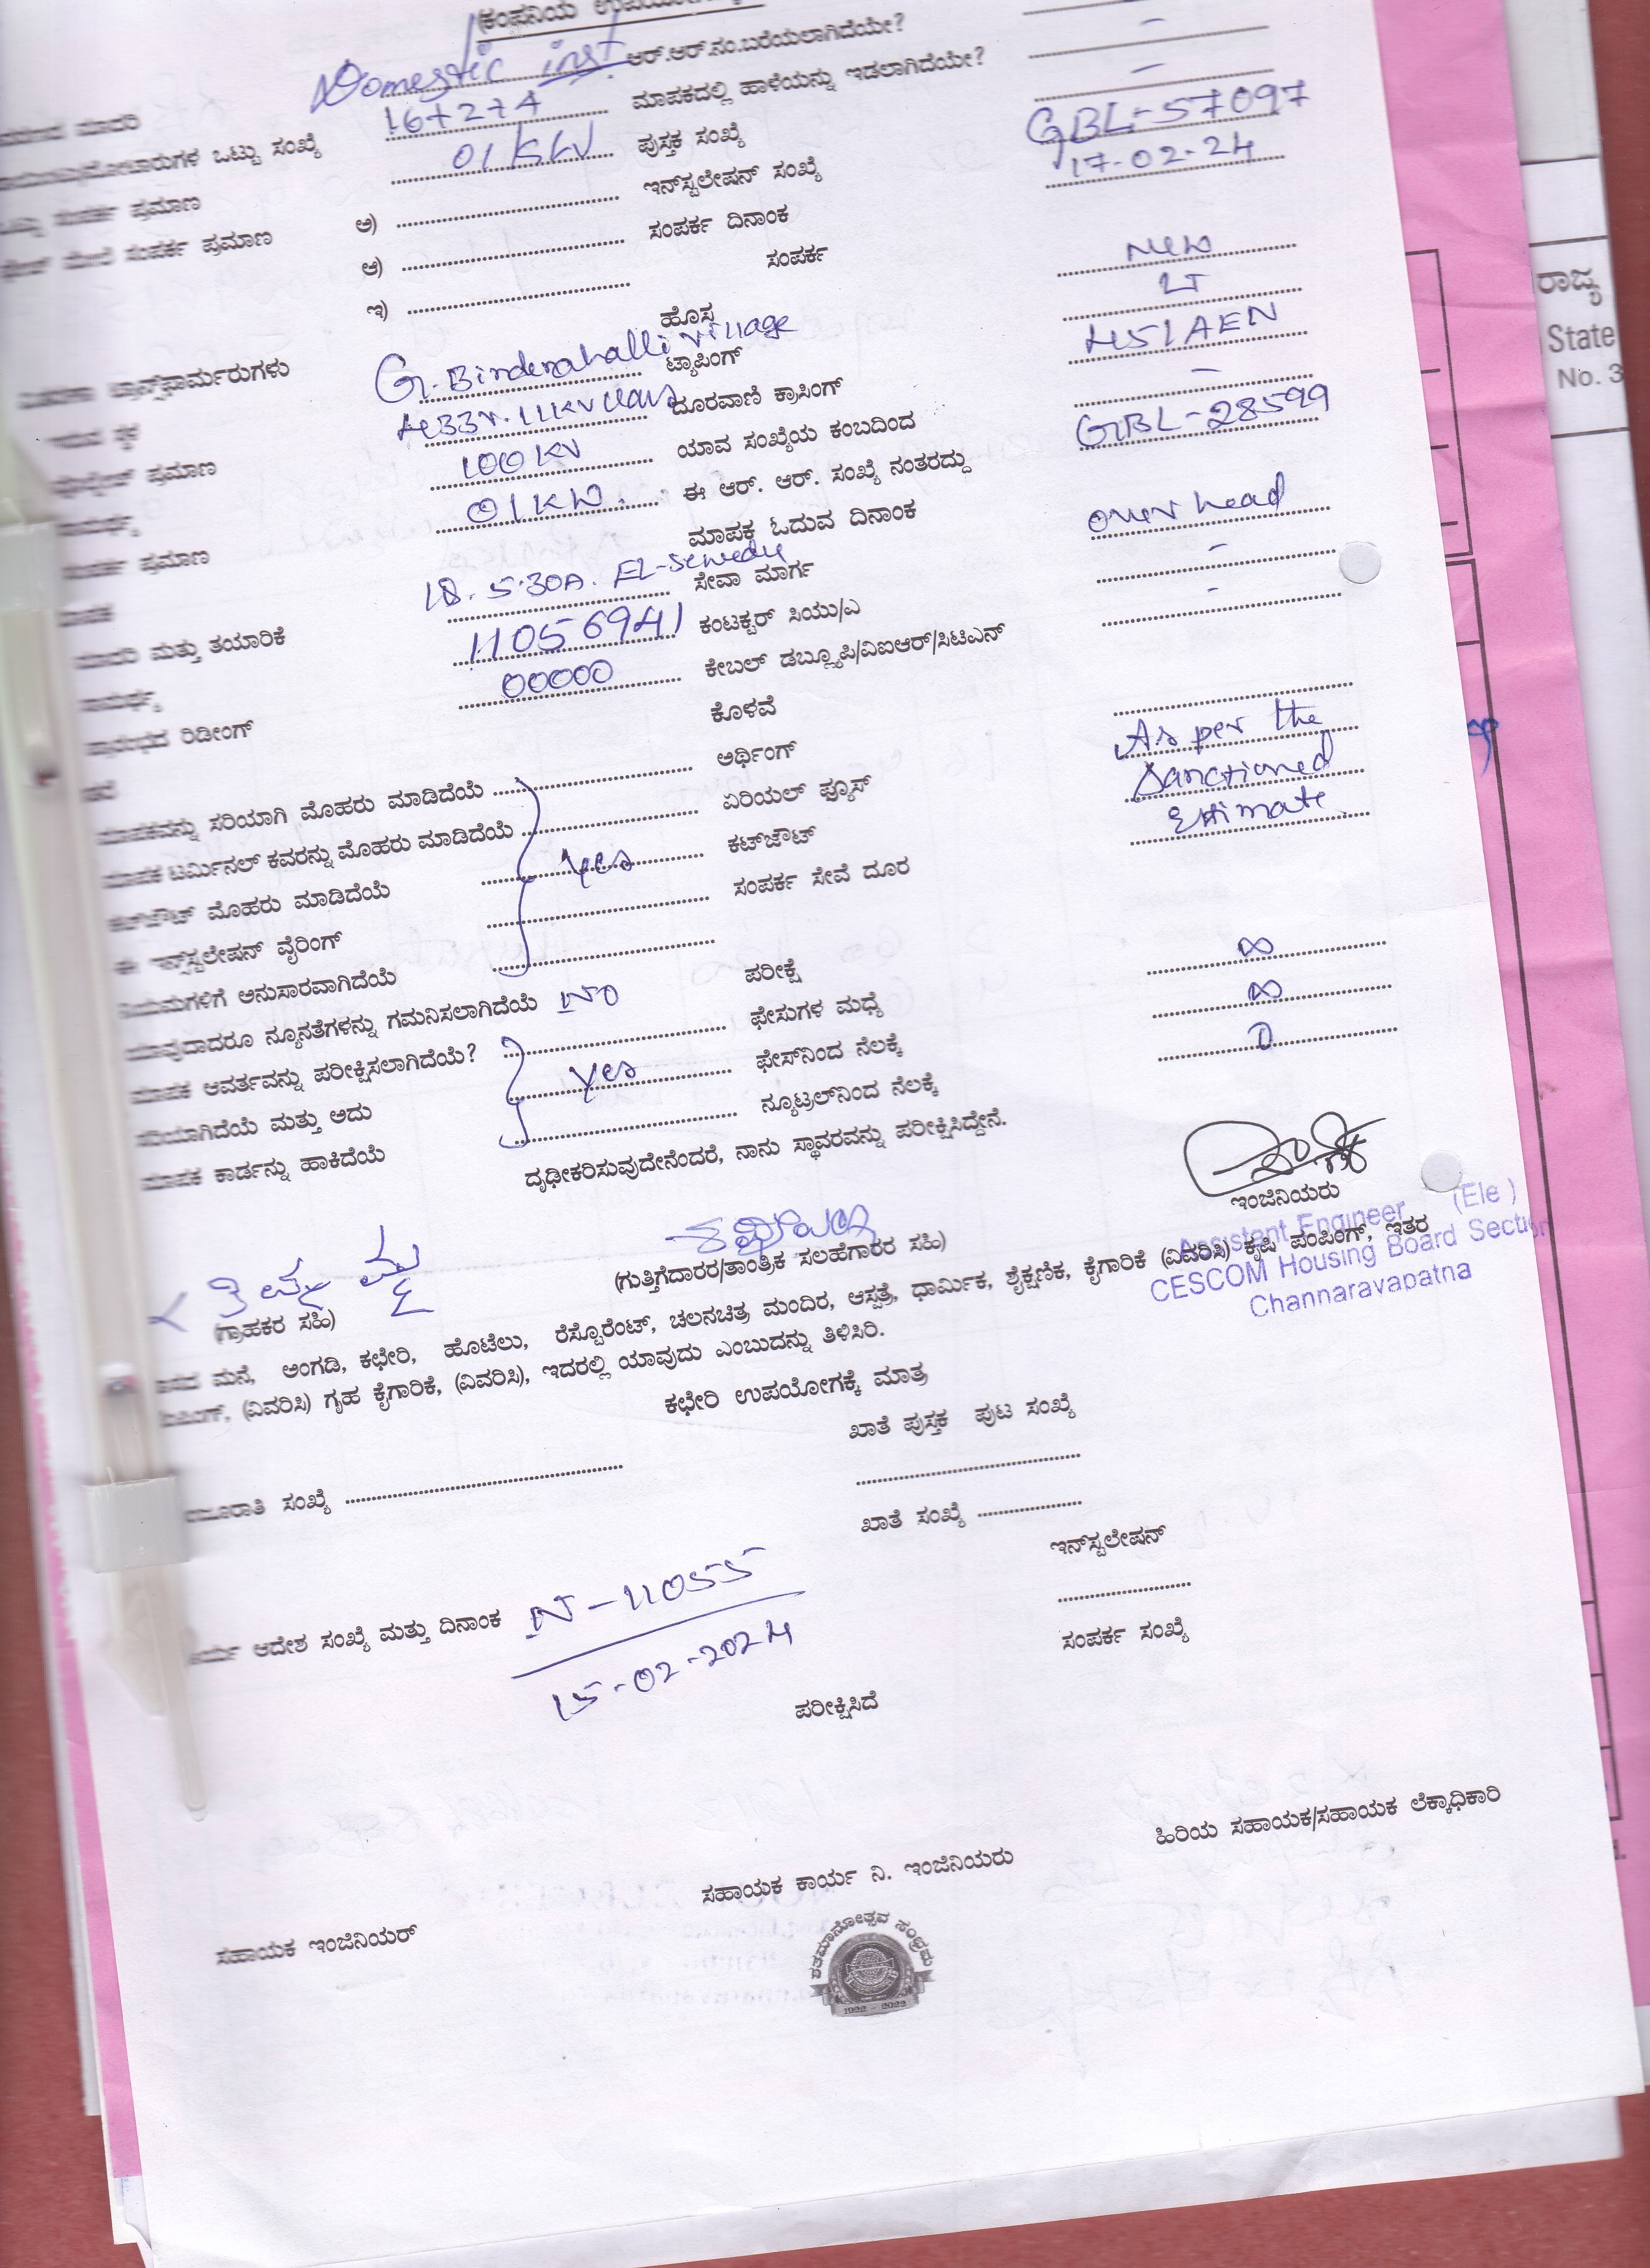 (ಕಂಪನಿಯ
Domestic inst. ಆರ್.ಆರ್.ನಂ.ಬರೆಯಲಾಗಿದೆಯೇ? –
ಮಾದರಿ 16+2+4 ಮಾಪಕದಲ್ಲಿ ಹಾಳೆಯನ್ನು ಇಡಲಾಗಿದೆಯೇ? –
ಒಟ್ಟು ಸಂಖ್ಯೆ 01 KW ಪುಸ್ತಕ ಸಂಖ್ಯೆ GBL-57097
ಸಂಪರ್ಕ ಪ್ರಮಾಣ ಅ) ಇನ್‌ಸ್ಟಲೇಷನ್ ಸಂಖ್ಯೆ 17-02-24
ಮೇಲೆ ಸಂಪರ್ಕ ಪ್ರಮಾಣ ಆ) ಸಂಪರ್ಕ ದಿನಾಂಕ
ಇ) ಸಂಪರ್ಕ New
ಹೊಸ LT
ಟ್ರಾನ್ಸ್‌ಫಾರ್ಮರುಗಳು G. Binderahalli village ಟ್ಯಾಪಿಂಗ್
ಸ್ಥಳ 11KV ದೂರವಾಣಿ ಕ್ರಾಸಿಂಗ್ –
ಪ್ರಮಾಣ 100 KV ಯಾವ ಸಂಖ್ಯೆಯ ಕಂಬದಿಂದ GBL-28599
ಸಾಮರ್ಥ್ಯ 01 KW. ಈ ಆರ್. ಆರ್. ಸಂಖ್ಯೆ ನಂತರದ್ದು
ಸಂಪರ್ಕ ಪ್ರಮಾಣ ಮಾಪಕ ಓದುವ ದಿನಾಂಕ over head
ಮಾಪಕ 5-30A. EL-Sewedy ಸೇವಾ ಮಾರ್ಗ –
ಮಾದರಿ ಮತ್ತು ತಯಾರಿಕೆ 11056941 ಕಂಟಕ್ಟರ್ ಸಿಯು/ಎ –
ಸಾಮರ್ಥ್ಯ 00000 ಕೇಬಲ್ ಡಬ್ಲ್ಯೂಪಿ/ವಿಐಆರ್/ಸಿಟಿಎನ್
ಪ್ರಾರಂಭದ ರಿಡೀಂಗ್ ಕೊಳವೆ
ಅರ್ಥಿಂಗ್ As per the
ಮಾಪಕವನ್ನು ಸರಿಯಾಗಿ ಮೊಹರು ಮಾಡಿದೆಯೆ ಏರಿಯಲ್ ಫ್ಯೂಸ್ Sanctioned
ಮಾಪಕ ಟರ್ಮಿನಲ್ ಕವರನ್ನು ಮೊಹರು ಮಾಡಿದೆಯೆ ಕಟ್‌ಔಟ್ Estimate.
ಕಟ್‌ಔಟ್ ಮೊಹರು ಮಾಡಿದೆಯೆ Yes ಸಂಪರ್ಕ ಸೇವೆ ದೂರ
ಈ ಇನ್ಸ್‌ಸ್ಟಲೇಷನ್ ವೈರಿಂಗ್
ನಿಯಮಗಳಿಗೆ ಅನುಸಾರವಾಗಿದೆಯೆ ಪರೀಕ್ಷೆ ∞
ಯಾವುದಾದರೂ ನ್ಯೂನತೆಗಳನ್ನು ಗಮನಿಸಲಾಗಿದೆಯೆ No ಫೇಸುಗಳ ಮಧ್ಯೆ ∞
ಮಾಪಕ ಆವರ್ತವನ್ನು ಪರೀಕ್ಷಿಸಲಾಗಿದೆಯೆ? ಫೇಸ್‌ನಿಂದ ನೆಲಕ್ಕೆ 0
ಸರಿಯಾಗಿದೆಯೆ ಮತ್ತು ಅದು Yes ನ್ಯೂಟ್ರಲ್‌ನಿಂದ ನೆಲಕ್ಕೆ
ಮಾಪಕ ಕಾರ್ಡನ್ನು ಹಾಕಿದೆಯೆ ದೃಢೀಕರಿಸುವುದೇನೆಂದರೆ, ನಾನು ಸ್ಥಾವರವನ್ನು ಪರೀಕ್ಷಿಸಿದ್ದೇನೆ.
ಇಂಜಿನಿಯರು
Assistant Engineer (Ele)
CESCOM Housing Board Section
Channaravapatna
(ಗ್ರಾಹಕರ ಸಹಿ) (ಗುತ್ತಿಗೆದಾರರ/ತಾಂತ್ರಿಕ ಸಲಹೆಗಾರರ ಸಹಿ)
ಮನೆ, ಅಂಗಡಿ, ಕಛೇರಿ, ಹೊಟೆಲು, ರೆಸ್ಟೊರೆಂಟ್, ಚಲನಚಿತ್ರ ಮಂದಿರ, ಆಸ್ಪತ್ರೆ, ಧಾರ್ಮಿಕ, ಶೈಕ್ಷಣಿಕ, ಕೈಗಾರಿಕೆ (ವಿವರಿಸಿ) ಕೃಷಿ ಪಂಪಿಂಗ್, ಇತರ
(ವಿವರಿಸಿ) ಗೃಹ ಕೈಗಾರಿಕೆ, (ವಿವರಿಸಿ), ಇದರಲ್ಲಿ ಯಾವುದು ಎಂಬುದನ್ನು ತಿಳಿಸಿರಿ.
ಕಛೇರಿ ಉಪಯೋಗಕ್ಕೆ ಮಾತ್ರ
ಖಾತೆ ಪುಸ್ತಕ ಪುಟ ಸಂಖ್ಯೆ
ಸಂಖ್ಯೆ
ಖಾತೆ ಸಂಖ್ಯೆ
ಇನ್‌ಸ್ಟಲೇಷನ್
ಆದೇಶ ಸಂಖ್ಯೆ ಮತ್ತು ದಿನಾಂಕ N-11055
15-02-2024
ಸಂಪರ್ಕ ಸಂಖ್ಯೆ
ಪರೀಕ್ಷಿಸಿದೆ
ಹಿರಿಯ ಸಹಾಯಕ/ಸಹಾಯಕ ಲೆಕ್ಕಾಧಿಕಾರಿ
ಸಹಾಯಕ ಕಾರ್ಯ ನಿ. ಇಂಜಿನಿಯರು
ಸಹಾಯಕ ಇಂಜಿನಿಯರ್
ಶತಮಾನೋತ್ಸವ ಸಂಭ್ರಮ
1922 - 2022
ರಾಜ್ಯ
State
No. 3